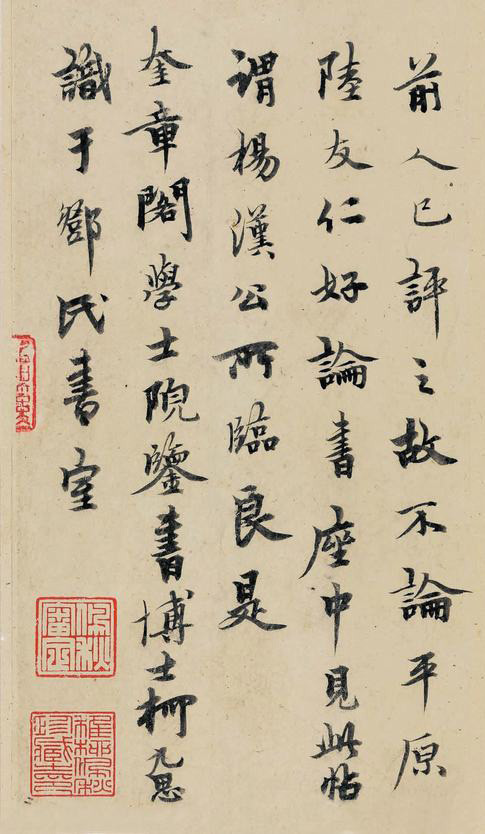 前人已評之故不論平原
陸友仁好論書座中見此帖
謂楊漢公所臨良是
奎章閣學士院鑒書博士柯九思
識于鄧氏書室